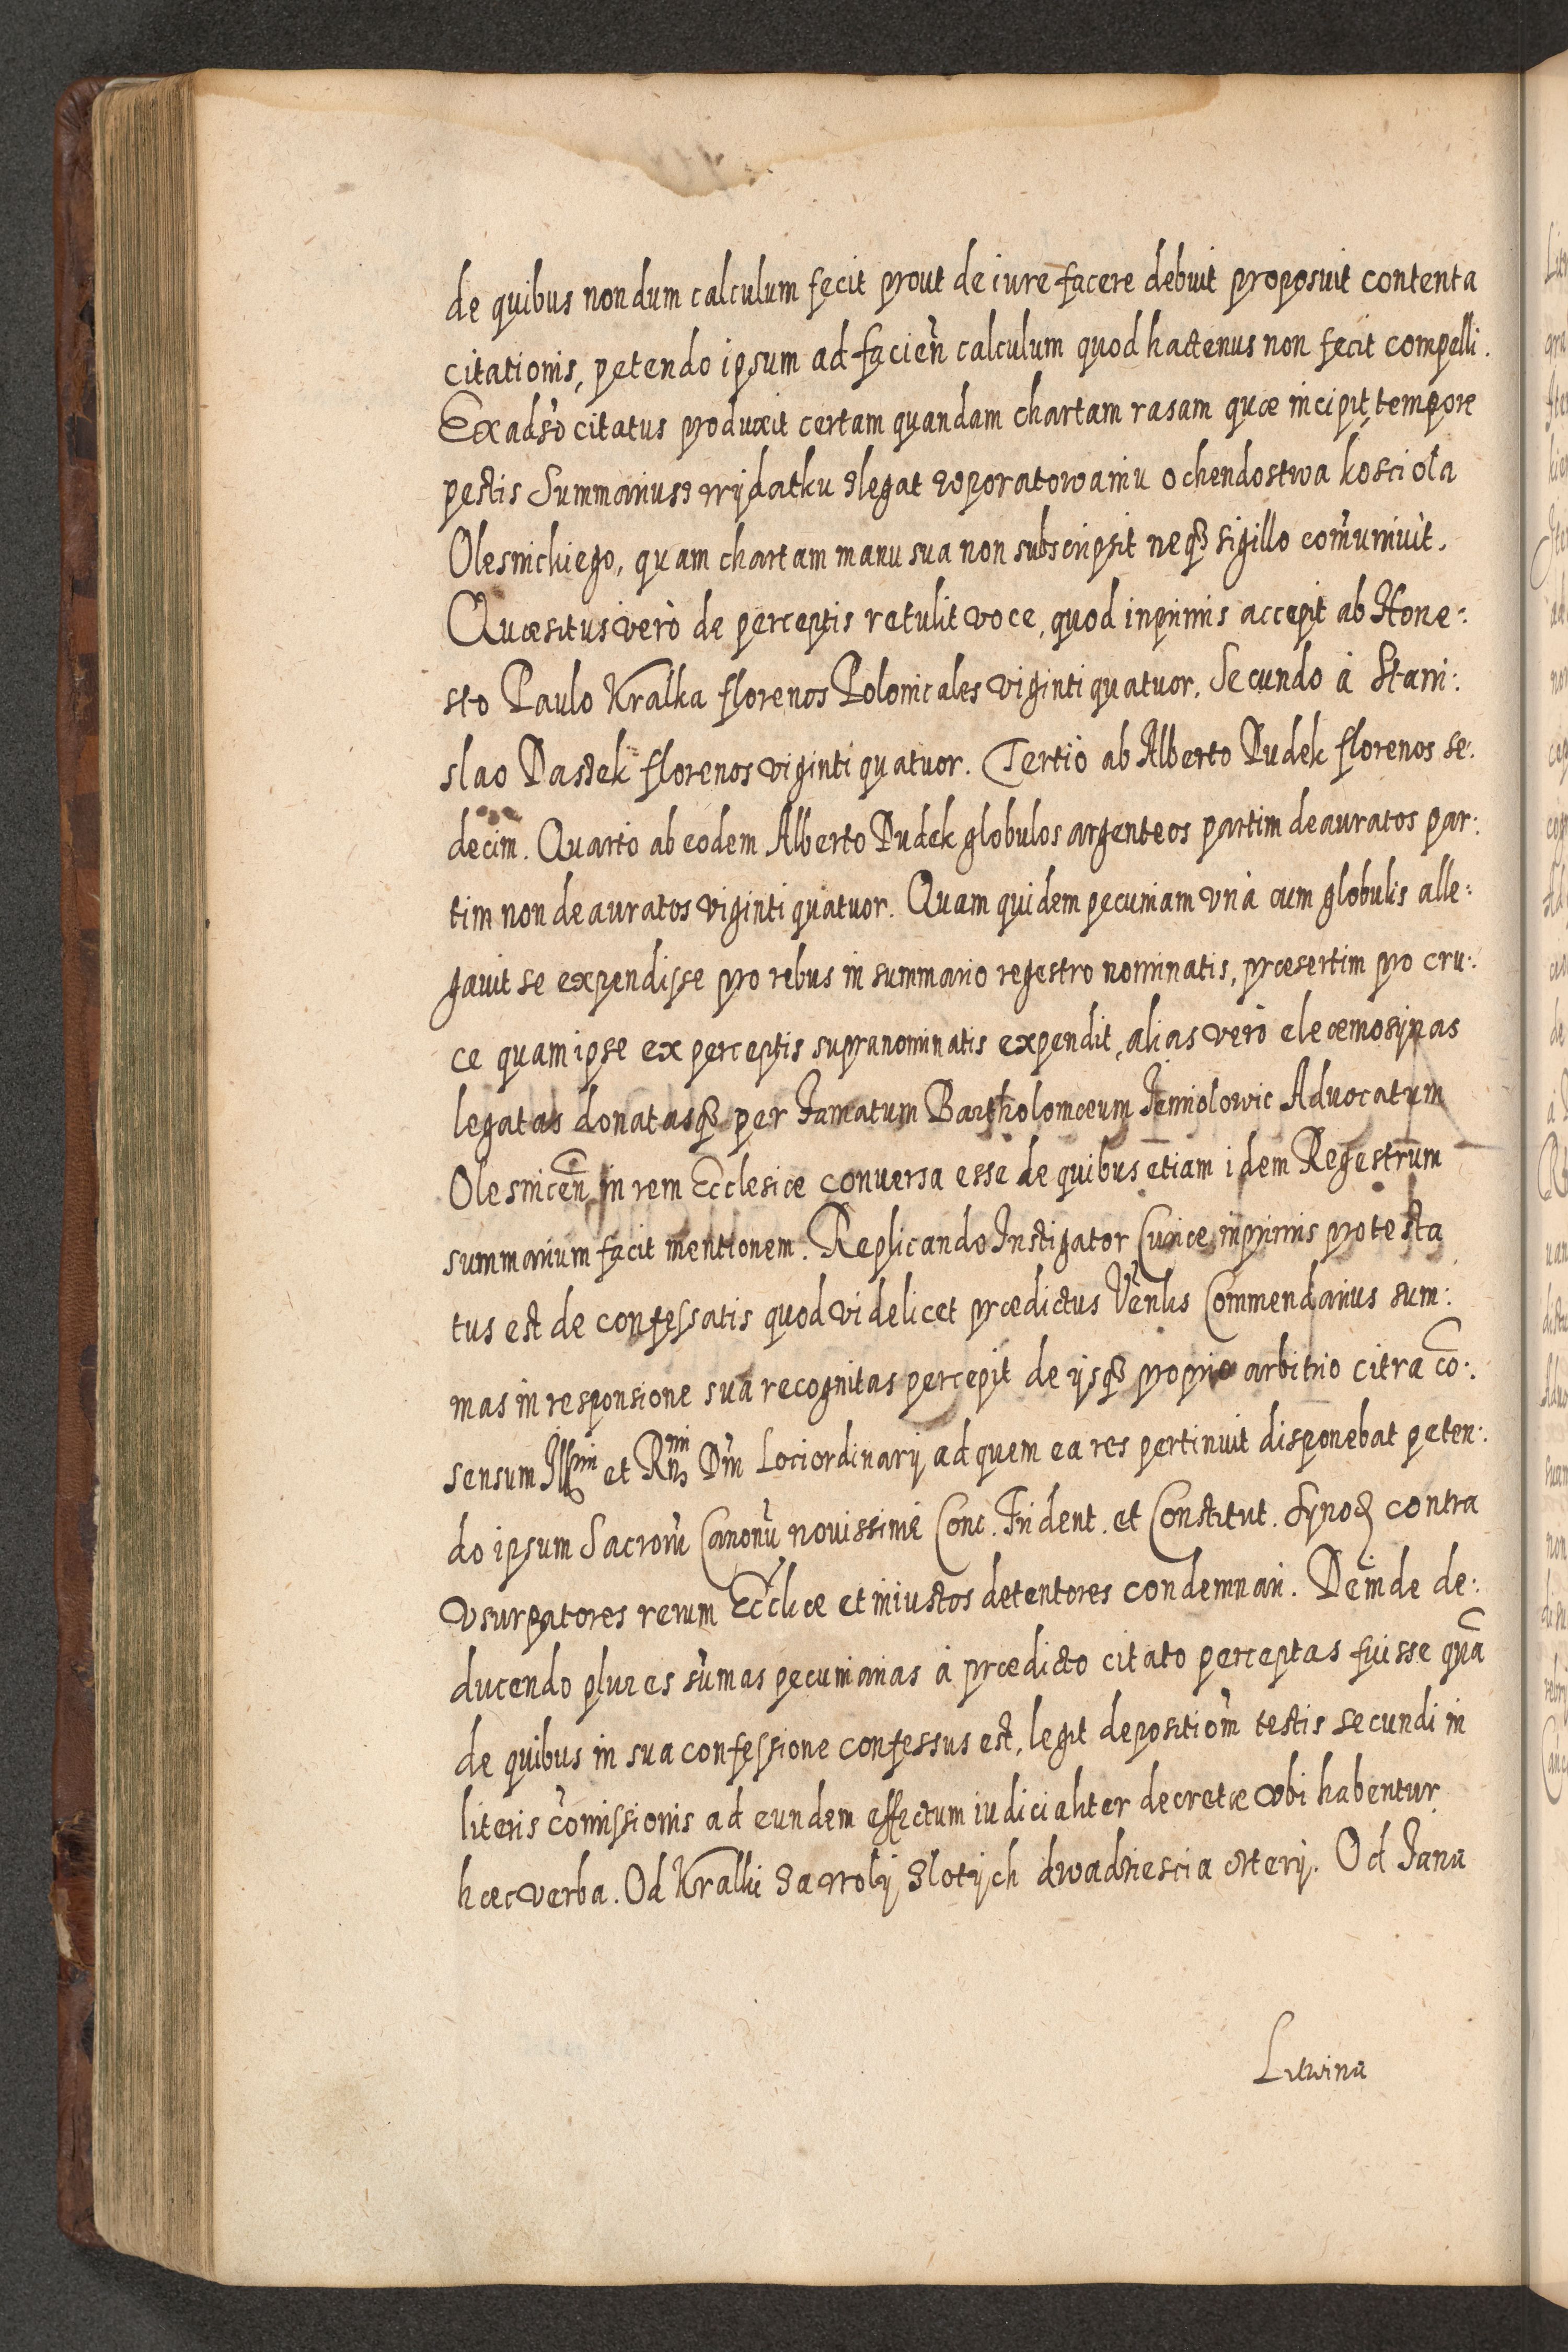 de quibus nondum calculum fecit prout de iure facere debuit proposuit contenta
citationis, petendo ipsum ad facień calculum quod hactenus non fecit compelli.
Ex adsò citatus produxit certam quandam chartam rasam quæ incipit, tempore
pestis Summarius wydatku z legat w poratowaniu ochendostwa kosciola
Olesnickiego, quam chartam manu sua non subscripsit neqȝ sigillo com̃uniuit.
Quæsitus verò de perceptis retulit voce, quod inprimis accepit ab Hone:
sto Paulo Kralka florenos Polonicales viginti quatuor. Secundo à Stani:
slao Pastek florenos viginti quatuor. Tertiò ab Alberto Dudek florenos se:
decim. Quartò ab eodem Alberto Dudek globulos argenteos partim deauratos par:
tim non deauratos viginti quatuor. Quam quidem pecuniam vnà cum globulis alle:
gauit se expendisse pro rebus in summario regestro nominatis, præsertim pro cru:
ce quam ipse ex perceptis supranominatis expendit, alias verò eleæmosynas
legatas donatasqȝ per Famatum Bartholomæum Jemiolowic Aduocatum
Olesnicen̄ in rem Ecclesiæ conuersa esse de quibus etiam idem Regestrum
summarium facit mentionem. Replicando Instigator Curiæ inprimis protesta
tus est de confessatis quod videlicet prædictus Venlis Commendarius sum:
mas in responsione sua recognitas percepit de ijsqȝ proprio arbitrio citra cō:
sensum Illmi et Rndmi Dñi Loci ordinarij ad quem ea res pertinuit disponebat peten:
do ipsum Sacrorũ Canonũ nouissimè Conc. Trident. et Constitut. Synod contra
vsurpatores rerum Ecc̃liæ et iniustos detentores condemnari. Deinde de:
ducendo plures sum̃as pecuniarias à prædicto citato perceptas fuisse quā
de quibus in sua confessione confessus est, legit depositiom̃ testis secundi in
literis com̃issionis ad eundem effectum iudicialiter decretæ vbi habentur
hæc verba. Od Kralki za woly zlotych dwadziescia cztery. Od Jana
Litwina